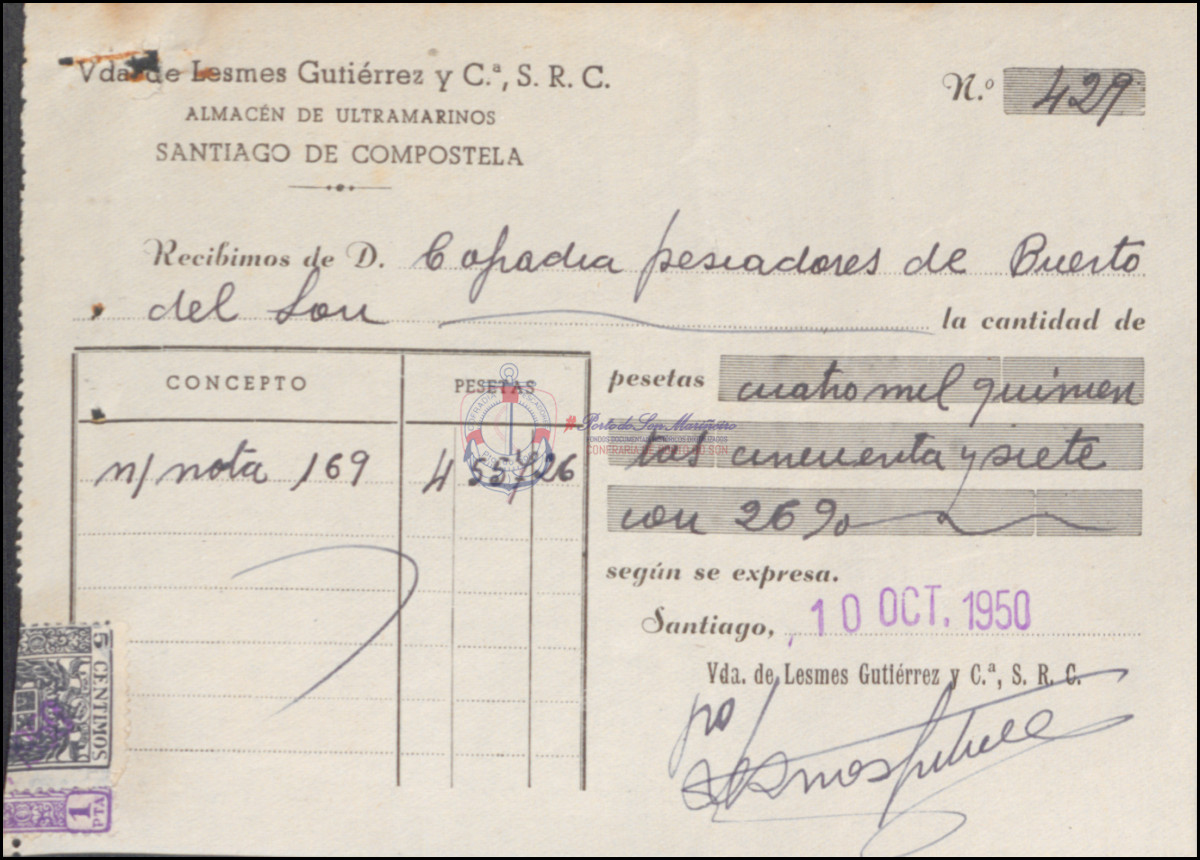 Vda. de Lesmes Gutiérrez y C.ª, S. R. C.
ALMACÉN DE ULTRAMARINOS
SANTIAGO DE COMPOSTELA
N.º 429
Recibimos de D. Cofradia pescadores de Puerto
del Son la cantidad de
CONCEPTO PESETAS
pesetas cuatro mil quinien
tas cincuenta y siete
con 26 %
n/ nota 169 4 557 26
según se expresa.
Santiago, 10 OCT. 1950
Vda. de Lesmes Gutiérrez y C.ª, S. R. C.
po/
5 CENTIMOS
1 PTA
#PortodoSon Mariñeiro
FONDOS DOCUMENTAIS HISTÓRICOS DIGITALIZADOS
CONFRARÍA DE PORTO DO SON